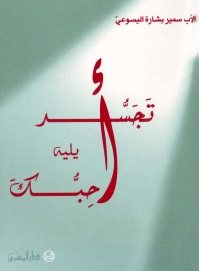 الأب سمير بشارة اليسوعيّ
تَجَسُّد
يليه
أُحِبُّكَ
دار المشرق